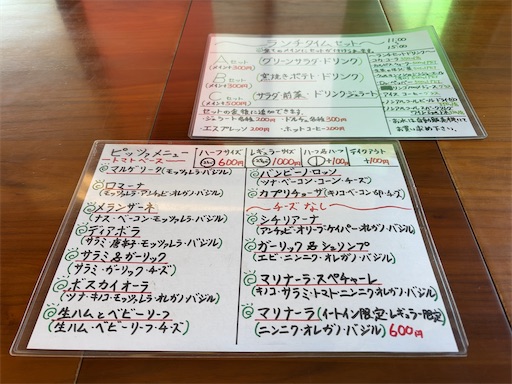 ランチタイムセット
11:00
15:00
Aセット
(メイン+300円)
(グリーンサラダ・ドリンク)
Bセット
(メイン+500円)
(窯焼きポテト・ドリンク)
Cセット
(メイン+500円)
(サラダ・前菜・ドリンク・ジェラート)
セットの金額に追加できます。
・ジェラート各種200円 ・ドルチェ各種300円
・エスプレッソ200円 ・ホットコーヒー200円
ランチセットドリンク
ピッツァメニュー
ートマトベースー
ハーフサイズ
600円
レギュラーサイズ
1000円
ハーフ&ハーフ
+100円
テイクアウト
+100円
マルゲリータ(モッツァレラ・バジル)
ロマーナ
(モッツァレラ・アンチョビ・オレガノ・バジル)
メランザーネ
(ナス・ベーコン・モッツァレラ・バジル)
ディアボラ
(サラミ・唐辛子・モッツァレラ・バジル)
サラミ&ガーリック
(サラミ・ガーリック・チーズ)
ボスカイオーラ
(ツナ・キノコ・モッツァレラ・オレガノ・バジル)
生ハムとベビーリーフ
(生ハム・ベビーリーフ・チーズ)
バンビーノ・ロッソ
(ツナ・ベーコン・コーン・チーズ)
カプリチョーザ(キノコ・ベーコン・卵・チーズ)
〜チーズなし〜
シチリアーナ
(アンチョビ・オリーブ・ケイパー・オレガノ・バジル)
ガーリック&シュリンプ
(エビ・ニンニク・オレガノ・バジル)
マリナーラ・スペチャーレ
(キノコ・サラミ・トマト・ニンニク・オレガノ・バジル)
マリナーラ(イートイン限定・レギュラー限定)
(ニンニク・オレガノ・バジル)600円